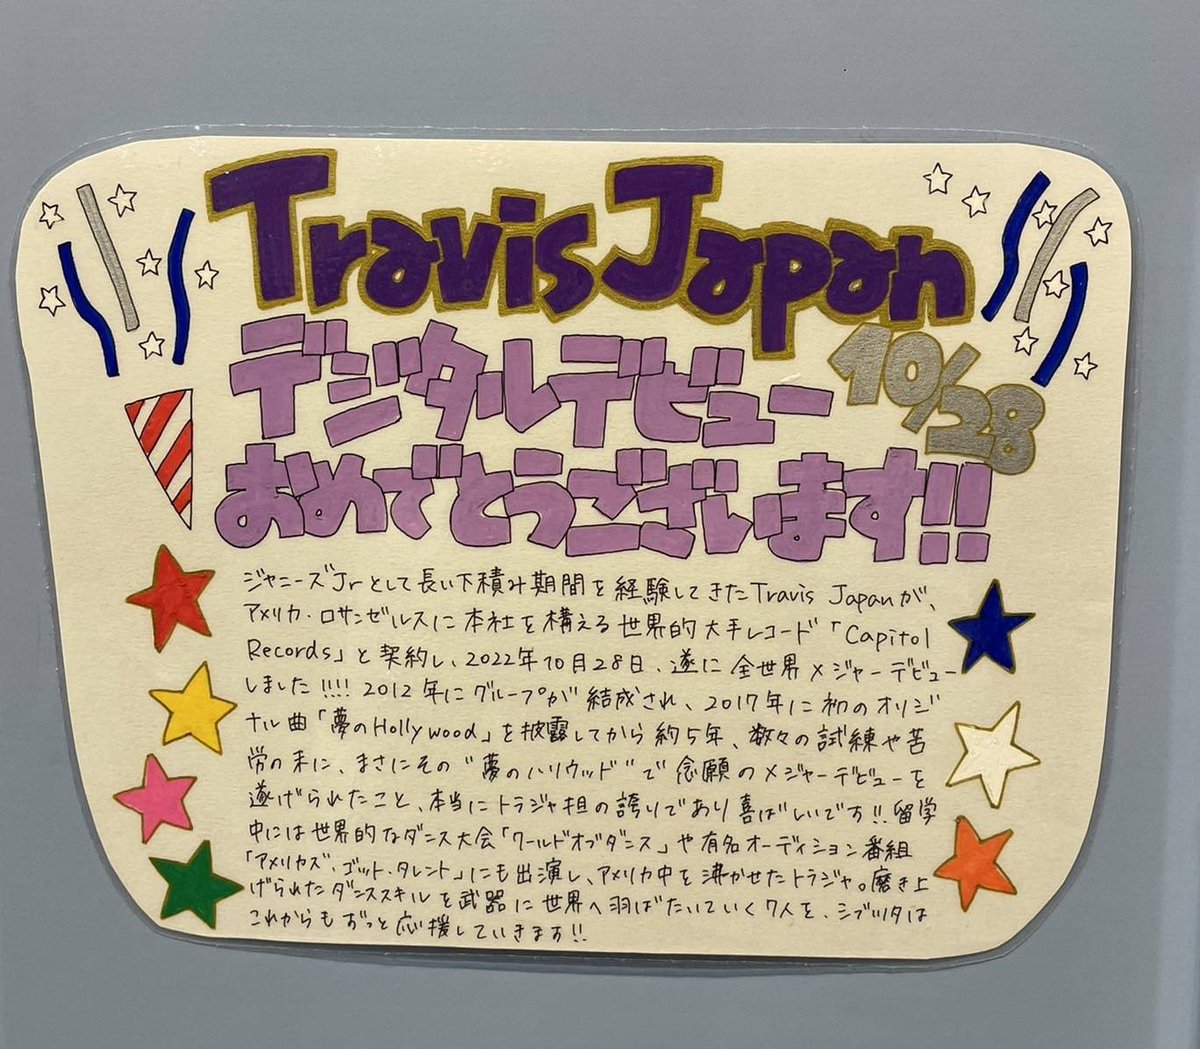 Travis Japan
デジタルデビュー 10/28
おめでとうございます!!
ジャニーズJrとして長い下積み期間を経験してきたTravis Japanが、
アメリカ・ロサンゼルスに本社を構える世界的大手レコード「Capitol
Records」と契約し、2022年10月28日、遂に全世界メジャーデビュー
しました!!!! 2012年にグループが結成され、2017年に初のオリジ
ナル曲「夢のHollywood」を披露してから約5年、数々の試練や苦
労の末に、まさにその"夢のハリウッド"で念願のメジャーデビューを
遂げられたこと、本当にトラジャ担の誇りであり喜ばしいです!!留学
中には世界的なダンス大会「ワールドオブダンス」や有名オーディション番組
「アメリカズ・ゴット・タレント」にも出演し、アメリカ中を沸かせたトラジャ。磨き上
げられたダンススキルを武器に世界へ羽ばたいていく7人を、シブツタは
これからもずっと応援していきます!!